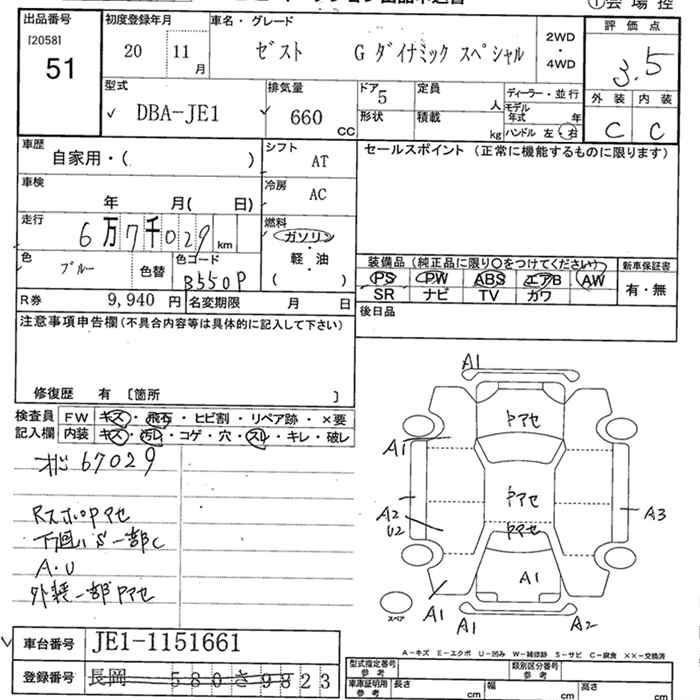 出品番号 初度登録年月 車名・グレード ①会場控
[2058] 20 11月 ゼスト G ダイナミック スペシャル 2WD・4WD 評価点
51 3.5
型式 排気量 ドア 定員 ディーラー・並行 外装 内装
DBA-JE1 660 CC 5 人 モデル年式 年 C C
形状 積載 kg ハンドル 左 右
車歴 シフト セールスポイント (正常に機能するものに限ります)
自家用・( ) AT
車検 冷房
年 月( 日) AC
走行 燃料
6万7千029 km ガソリン・軽・油
色 色コード ( )
ブルー 色替 B550P 装備品 (純正品に限り○をつけてください) 新車保証書
PS PW ABS エアB AW 有・無
SR ナビ TV カワ
R券 9,940 円 名変期限 月 日 後日品
注意事項申告欄(不具合内容等は具体的に記入して下さい)
修復歴 有 [箇所 ]
検査員 FW キズ・飛石・ヒビ割・リペア跡・×要
記入欄 内装 キズ・汚レ・コゲ・穴・スレ・キレ・破レ
67029
A1
Pアセ
A1
Pアセ
A2 A3
U2 Pアセ
A1
A1 A1 A2
スペア
RスポPアセ
下回りS一部C
A.U
外装一部Pアセ
A-キズ E-エクボ U-凹み W-補修跡 S-サビ C-腐食 ××-交換済
車台番号 JE1-1151661
型式指定番号 参考 類別区分番号 参考
登録番号 長岡 580さ9823
車庫証明用 参考 長さ cm 幅 cm 高さ cm